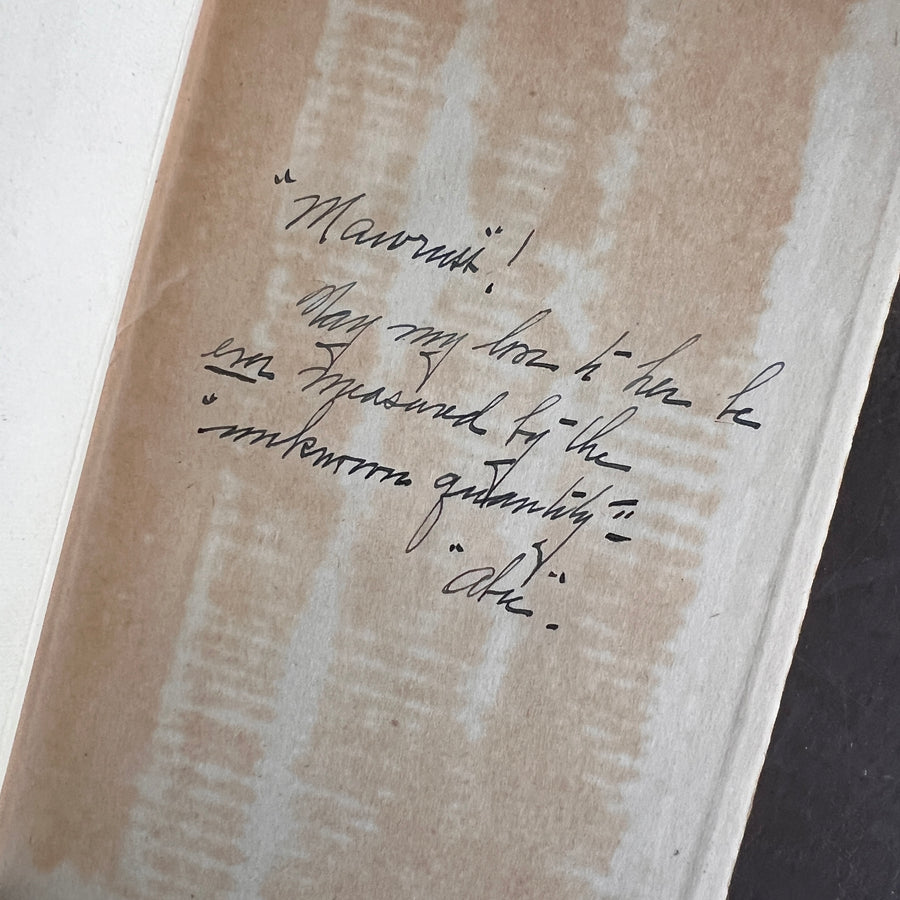 "Mawruss"!
May my love to her be
ever measured by the
"unknown quantity"
"Abie".